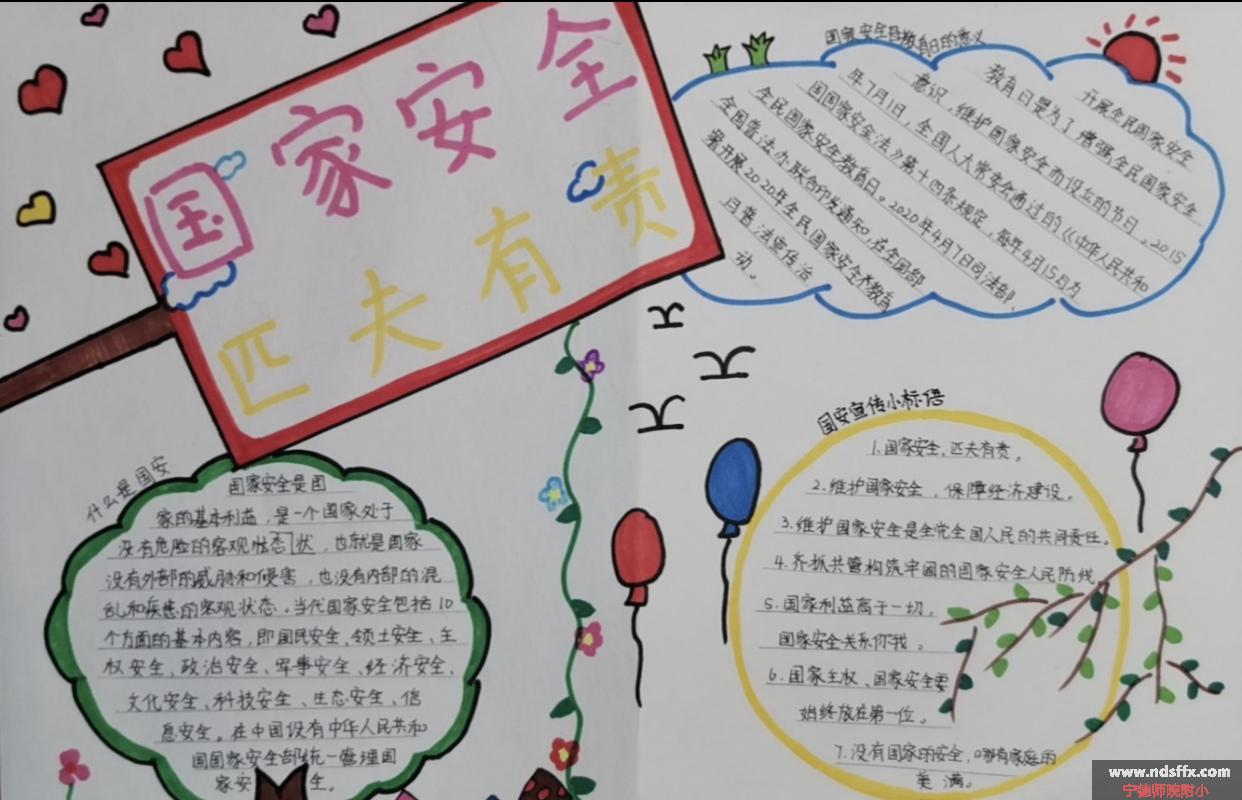 国家安全
匹夫有责
国家安全教育日的意义
开展全民国家安全
教育日是为了增强全民国家安全
意识，维护国家安全而设立的节日。2015
年7月1日，全国人大常安会通过的《中华人民共和
国国家安全法》第十四条规定，每年4月15日为
全民国家安全教育日。2020年4月7日司法部、
全国普法办联合印发通知，在全国部
署开展2020年全民国家安全教育
日普法宣传活
动。
什么是国安
国家安全是国
家的基本利益，是一个国家处于
没有危险的客观状态，也就是国家
没有外部的威胁和侵害，也没有内部的混
乱和疾患的客观状态。当代国家安全包括10
个方面的基本内容，即国民安全、领土安全、主
权安全、政治安全、军事安全、经济安全、
文化安全、科技安全、生态安全、信
息安全。在中国设有中华人民共和
国国家安全部统一管理国
家安 生。
国安宣传小标语
1.国家安全，匹夫有责。
2.维护国家安全，保障经济建设。
3.维护国家安全是全党全国人民的共同责任。
4.齐抓共管构筑牢固的国家安全人民防线
5.国家利益高于一切，
国家安全关系你我。
6.国家主权、国家安全要
始终放在第一位。
7.没有国家的安全，哪有家庭的
美满。
www.ndsffx.com
宁德师院附小